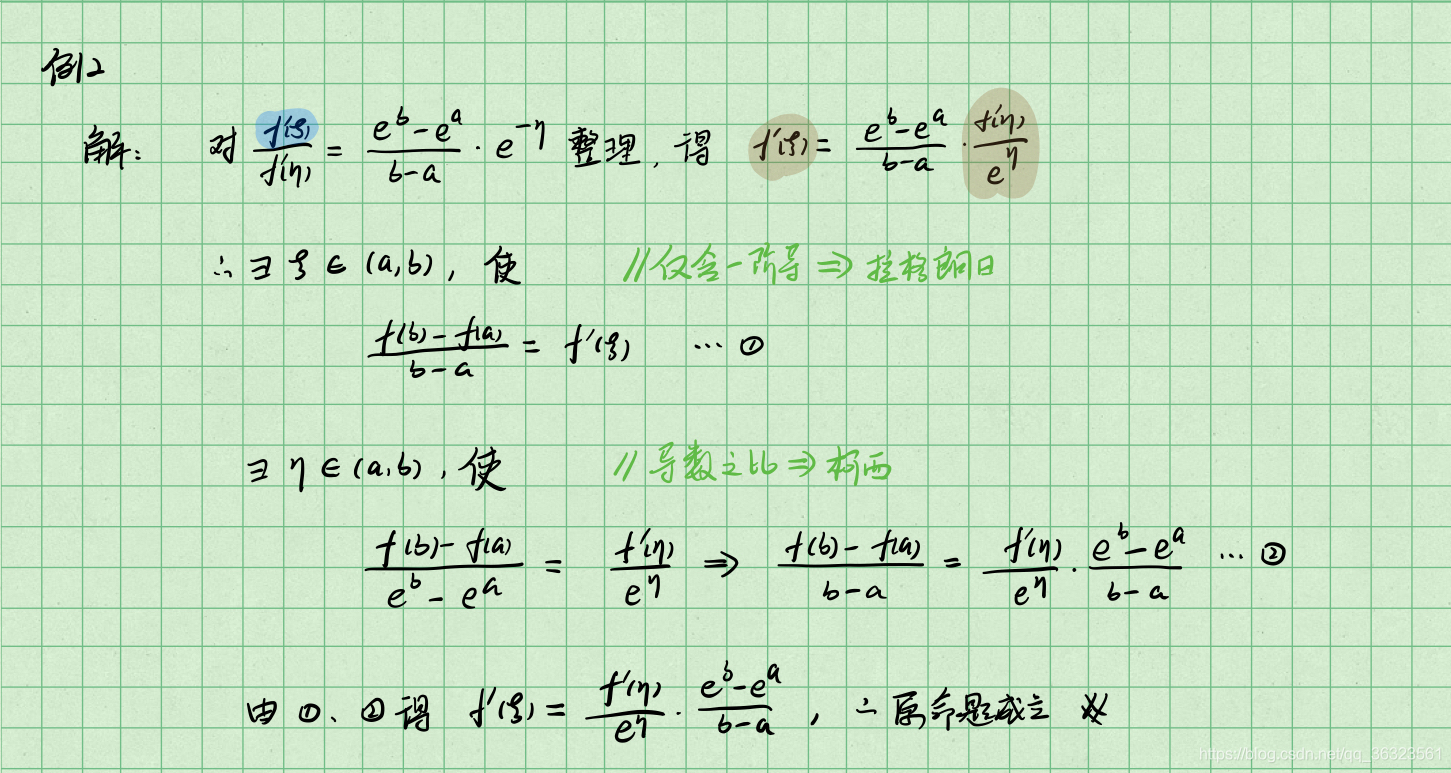 例2
解: 对 f'(ξ)/f'(η) = (e^b - e^a)/(b-a) · e^{-η} 整理, 得 f'(ξ) = (e^b - e^a)/(b-a) · f'(η)/e^η
∴ ∃ ξ ∈ (a,b), 使 //仅含一阶导 ⇒ 拉格朗日
(f(b) - f(a))/(b-a) = f'(ξ) … ①
∃ η ∈ (a,b), 使 //导数之比 ⇒ 柯西
(f(b) - f(a))/(e^b - e^a) = f'(η)/e^η ⇒ (f(b) - f(a))/(b-a) = f'(η)/e^η · (e^b - e^a)/(b-a) … ②
由①、②得 f'(ξ) = f'(η)/e^η · (e^b - e^a)/(b-a), ∴ 原命题成立
https://blog.csdn.net/qq_36323561